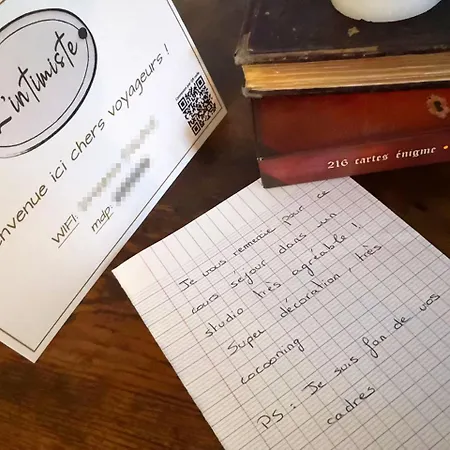 L'intimiste
envenue ici chers voyageurs !
WIFI:
mdp:
216 cartes énigme •
Je vous remercie pour ce
cours séjour dans un
studio très agréable !
Super décoration, très
cocooning
PS : Je suis fan de vos
cadres